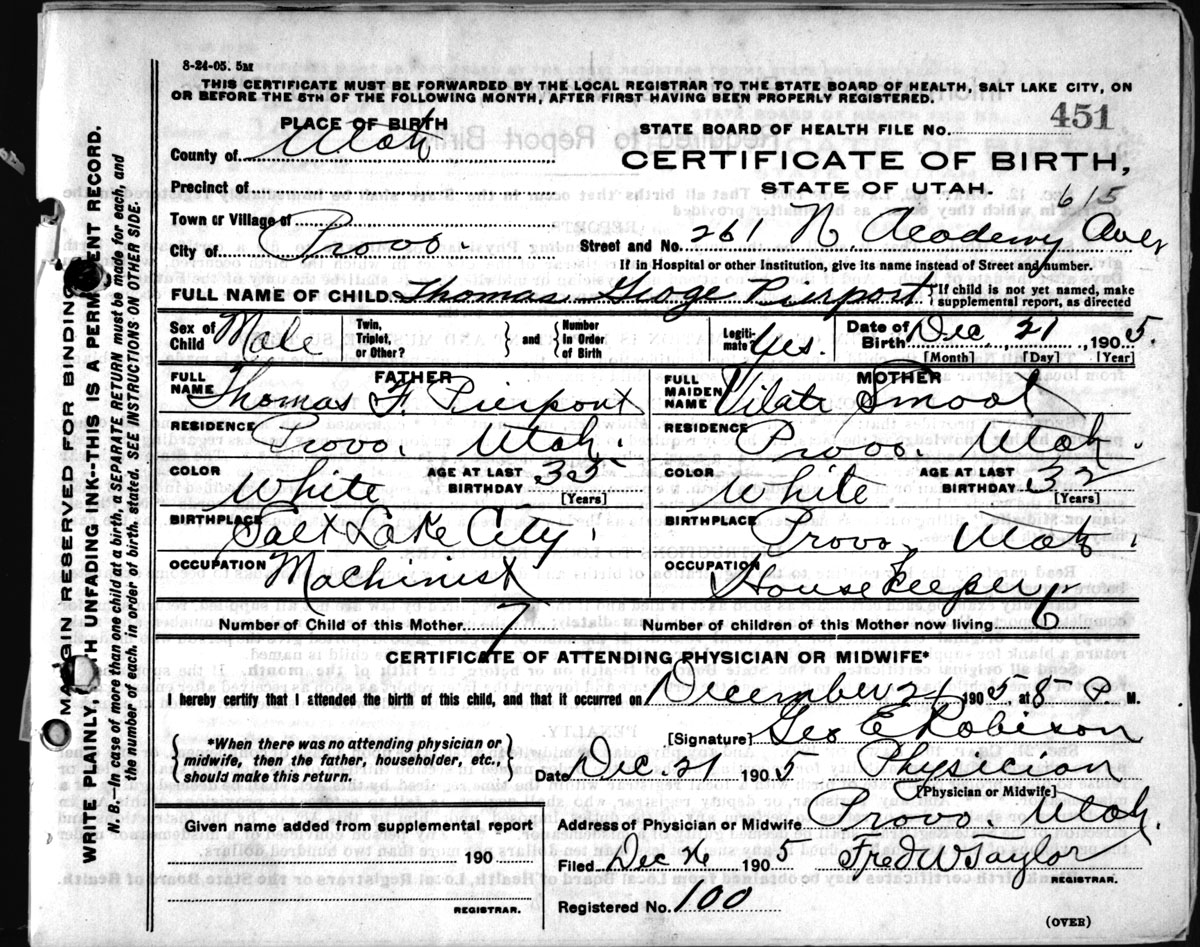 8-24-05. 5M
THIS CERTIFICATE MUST BE FORWARDED BY THE LOCAL REGISTRAR TO THE STATE BOARD OF HEALTH, SALT LAKE CITY, ON
OR BEFORE THE 5TH OF THE FOLLOWING MONTH, AFTER FIRST HAVING BEEN PROPERLY REGISTERED.
PLACE OF BIRTH
County of Utah
Precinct of
Town or Village of
City of Provo.
STATE BOARD OF HEALTH FILE No. 451
CERTIFICATE OF BIRTH,
STATE OF UTAH.
615
Street and No. 261 N Academy Ave
If in Hospital or other Institution, give its name instead of Street and number.
FULL NAME OF CHILD. Thomas George Pierpont { If child is not yet named, make
supplemental report, as directed
Sex of Child Male Twin, Triplet, or Other? } and { Number In Order of Birth Legitimate? Yes. Date of Birth Dec, 21, 1905.
[Month] [Day] [Year]
FATHER
FULL NAME Thomas F. Pierpont
RESIDENCE Provo. Utah.
COLOR White AGE AT LAST BIRTHDAY 35
[Years]
BIRTHPLACE Salt Lake City.
OCCUPATION Machinist
MOTHER
FULL MAIDEN NAME Vilate Smoot
RESIDENCE Provo. Utah.
COLOR White AGE AT LAST BIRTHDAY 32
[Years]
BIRTHPLACE Provo, Utah.
OCCUPATION House Keeper
Number of Child of this Mother 7 Number of children of this Mother now living 6
CERTIFICATE OF ATTENDING PHYSICIAN OR MIDWIFE*
I hereby certify that I attended the birth of this child, and that it occurred on December 21 1905, at 8 P M.
{ *When there was no attending physician or
midwife, then the father, householder, etc.,
should make this return. }
[Signature] Geo E Robison
Date Dec. 21 1905 Physician
[Physician or Midwife]
Given name added from supplemental report
190
REGISTRAR.
Address of Physician or Midwife Provo Utah.
Filed Dec 26 1905 Fred W Taylor
REGISTRAR.
Registered No. 100
(OVER)
MARGIN RESERVED FOR BINDING
WRITE PLAINLY, WITH UNFADING INK--THIS IS A PERMANENT RECORD.
N. B.—In case of more than one child at a birth, a SEPARATE RETURN must be made for each, and
the number of each, in order of birth, stated. SEE INSTRUCTIONS ON OTHER SIDE.